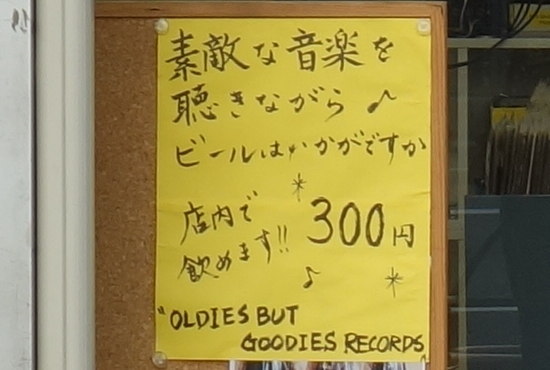 素敵な音楽を
聴きながら♪
ビールはいかがですか
店内で
飲めます!!
300円
"OLDIES BUT
GOODIES RECORDS"